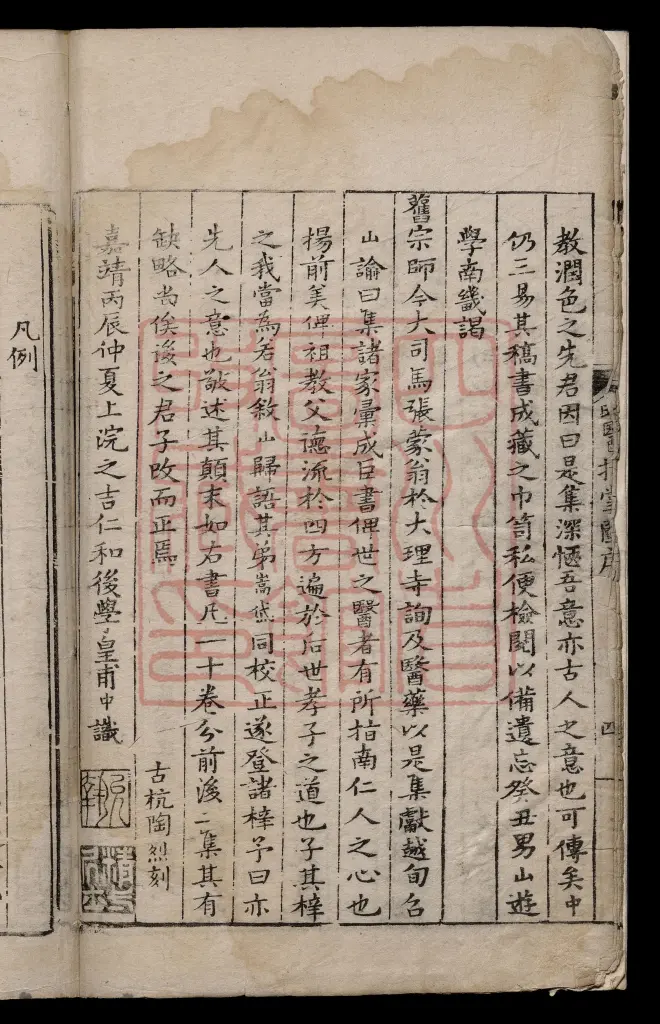 教潤色之先君因曰是集深愜吾意亦古人之意也可傳矣中
仍三易其稿書成藏之巾笥私便檢閱以備遺忘癸丑男山遊
學南畿謁
舊宗師今大司馬張蒙翁於大理寺詢及醫藥以是集獻越旬召
山諭曰集諸家彙成巨書俾世之醫者有所指南仁人之心也
揚前美俾祖教父德流於四方遍於后世孝子之道也子其梓
之我當為若翁敘山歸語其弟嵩岱同校正遂登諸梓予曰亦
先人之意也敢述其顛末如右書凡一十卷分前後二集其有
缺略尚俟後之君子改而正焉
古杭陶烈刻
嘉靖丙辰仲夏上浣之吉仁和後學皇甫中識
凡例
醫指掌圖序
四